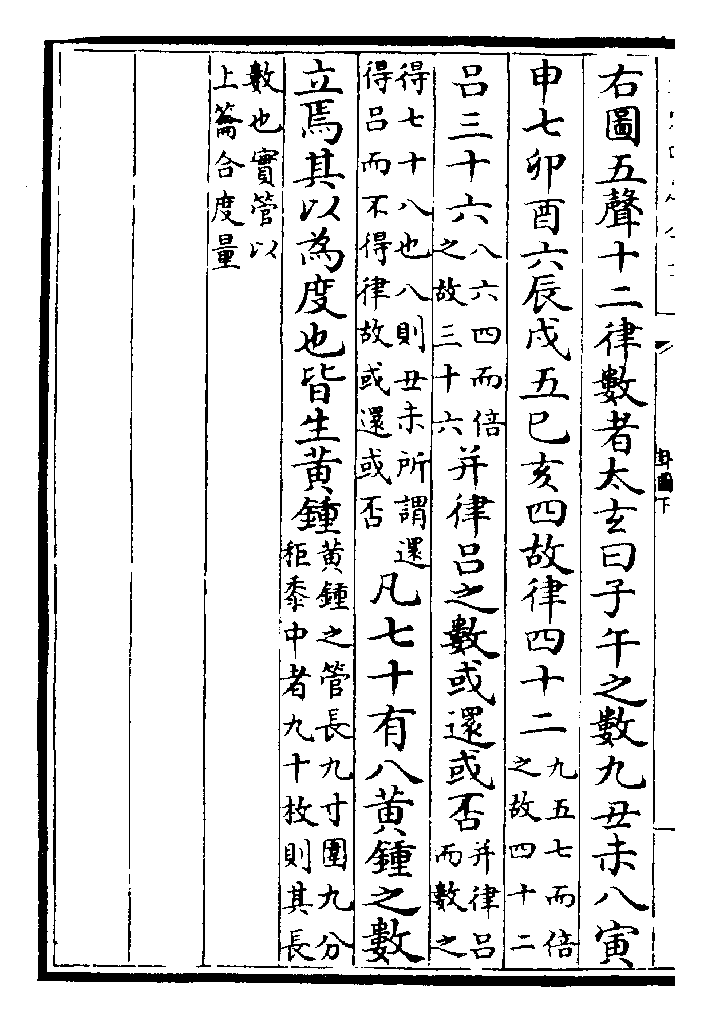 右圖五聲十二律數者太𤣥曰子午之數九丑未八寅
申七卯酉六辰戍五巳亥四故律四十二九五七而倍之故四十二
呂三十六八六四而倍之故三十六并律呂之數或還或否并律呂而數之
得七十八也八則丑未所謂還得呂而不得律故或還或否凡七十有八黃鍾之數
立焉其以為度也皆生黃鍾黃鍾之管長九寸圍九分秬黍中者九十枚則其長
數也實管以上籥合度量
卦圖下